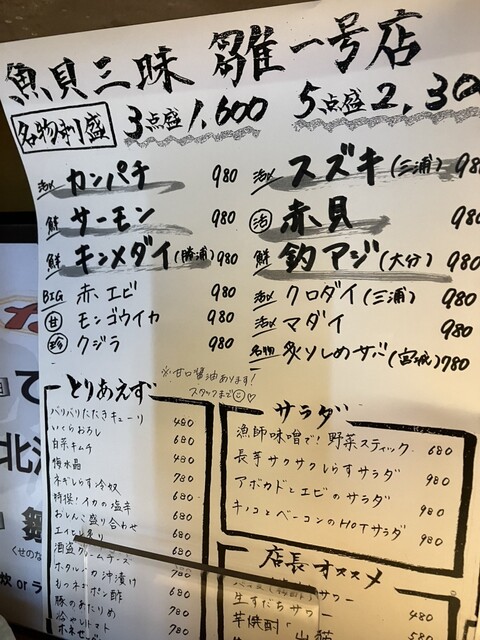 魚貝三昧 雛一号店
名物刺盛 3点盛1,600 5点盛2,30
活〆 カンパチ 980
鮮 サーモン 980
鮮 キンメダイ(勝浦) 980
BIG 赤エビ 980
甘 モンゴウイカ 980
珍 クジラ 980
活〆 スズキ(三浦) 980
活 赤貝 980
鮮 釣アジ(大分) 980
活〆 クロダイ(三浦) 980
活〆 マダイ 980
名物 炙りしめサバ(宮城) 780
※甘口醤油あります!
スタッフまで
とりあえず
バリバリたたきキューリ 480
いくらおろし 680
白菜キムチ 480
梅水晶 480
ネギしらす冷奴 780
特撰!イカの塩辛 680
おしんこ盛り合わせ 680
680
酒盗クリームチーズ 680
ホタルイカ沖漬け 780
もつネギポン酢 680
豚の 780
冷やしトマト 780
サラダ
漁師味噌で!野菜スティック 680
長芋サクサクしらすサラダ 980
アボカドとエビのサラダ 980
キノコとベーコンのHOTサラダ 980
店長オススメ
サワー
生すだちサワー 480
芋焼酎「山猫 580
北海
くせのな
炊 or ラ